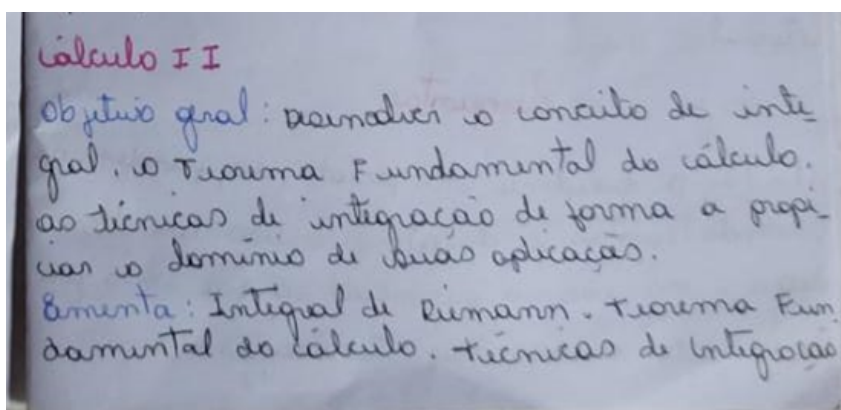 Cálculo II
Objetivo geral: Desenvolver o conceito de inte
gral. o Teorema Fundamental do cálculo.
as técnicas de integração de forma a propi-
ciar o domínio de suas aplicação.
Ementa: Integral de Riemann. Teorema Fun
damental do cálculo. técnicas de integração